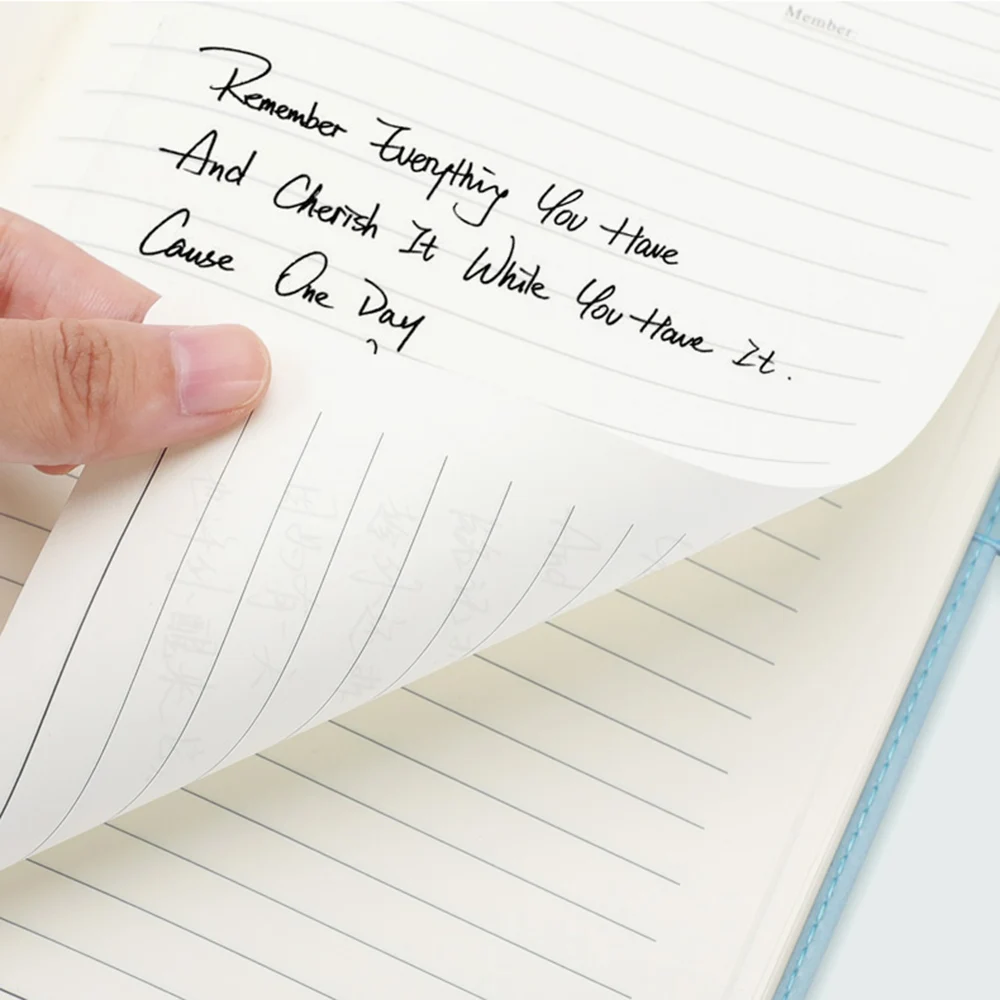 Member
Remember Everything You Have
And Cherish It While You Have It.
Cause One Day